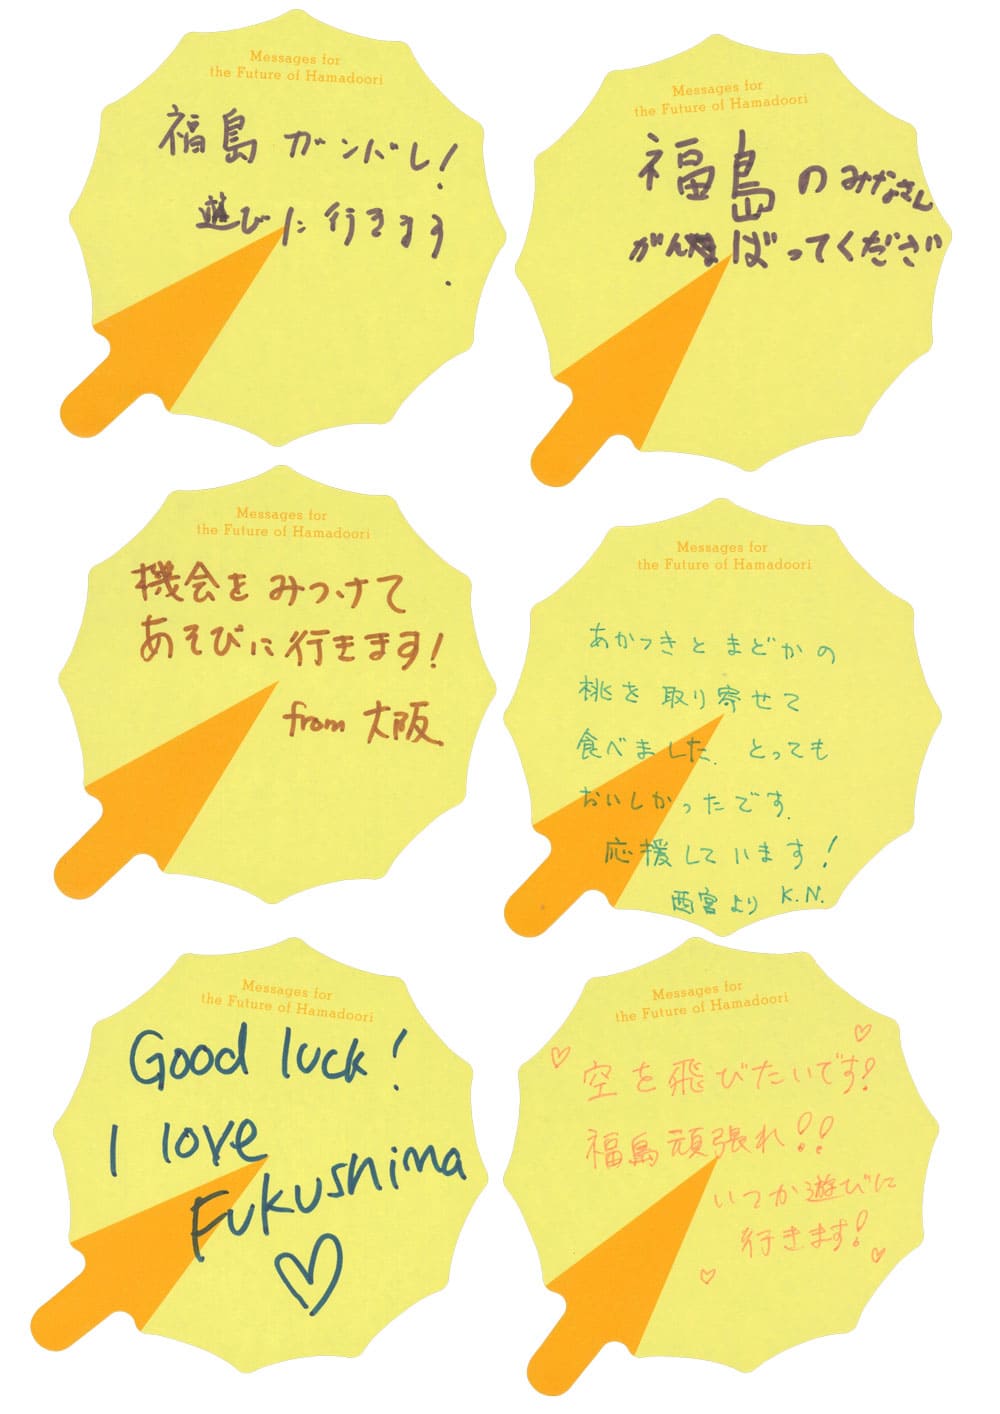 Messages for
the Future of Hamadoori
福島 ガンバレ!
遊びに行きます.
Messages for
the Future of Hamadoori
福島のみなさん
がんばってくださ
Messages for
the Future of Hamadoori
機会をみつけて
あそびに行きます!
from 大阪
Messages for
the Future of Hamadoori
あかつきとまどかの
桃を取り寄せて
食べました. とっても
おいしかったです.
応援しています!
西宮より K.N.
Messages for
the Future of Hamadoori
Good luck!
I love
Fukushima
Messages for
the Future of Hamadoori
空を飛びたいです!
福島頑張れ!!
いつか遊びに
行きます!